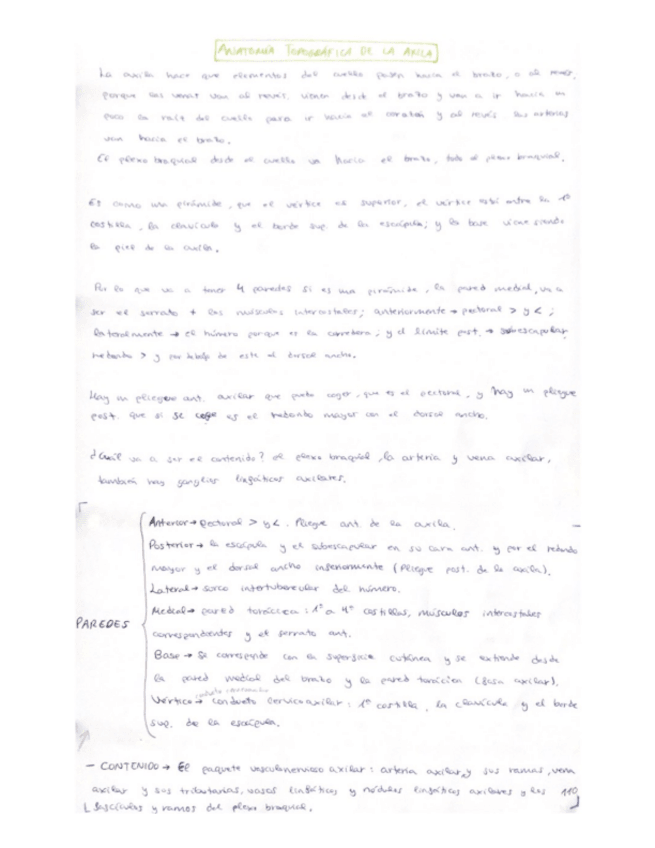 ANATOMÍA TOPOGRÁFICA DE LA AXILA
La axila hace que elementos del cuello pasen hacia el brazo, o al revés,
porque las venas van al revés, vienen desde el brazo y van a ir hacia un
poco la raíz del cuello para ir hacia el corazón y al revés, las arterias
van hacia el brazo.
El plexo braquial desde el cuello va hacia el brazo, todo el plexo braquial.
Es como una pirámide, que el vértice es superior, el vértice está entre la 1º
costilla, la clavícula y el borde sup. de la escápula; y la base viene siendo
la piel de la axila.
Por lo que va a tener 4 paredes si es una pirámide, la pared medial, va a
ser el serrato + los músculos intercostales; anteriormente → pectoral > y < ;
lateralmente → el húmero porque es la corredera; y el límite post. → subescapular,
redondo > y por debajo de este el dorsal ancho.
Hay un pliegue ant. axilar que puedo coger, que es el pectoral, y hay un pliegue
post. que si se coge es el redondo mayor con el dorsal ancho.
¿Cuál va a ser el contenido? el plexo braquial, la arteria y vena axilar,
también hay ganglios linfáticos axilares.
Anterior → Pectoral > y <. Pliegue ant. de la axila.
Posterior → la escápula y el subescapular en su cara ant. y por el redondo
mayor y el dorsal ancho inferiormente (Pliegue post. de la axila).
Lateral → surco intertubercular del húmero.
Medial → pared torácica: 1º a 4º costillas, músculos intercostales
PAREDES
correspondientes y el serrato ant.
Base → Se corresponde con la superficie cutánea y se extiende desde
la pared medial del brazo y la pared torácica (fosa axilar).
Vértice → conducto cervicoaxilar: 1º costilla, la clavícula y el borde
sup. de la escápula.
– CONTENIDO → El paquete vasculonervioso axilar: arteria axilar y sus ramas, vena
axilar y sus tributarias, vasos linfáticos y nódulos linfáticos axilares y los
fascículos y ramos del plexo braquial.